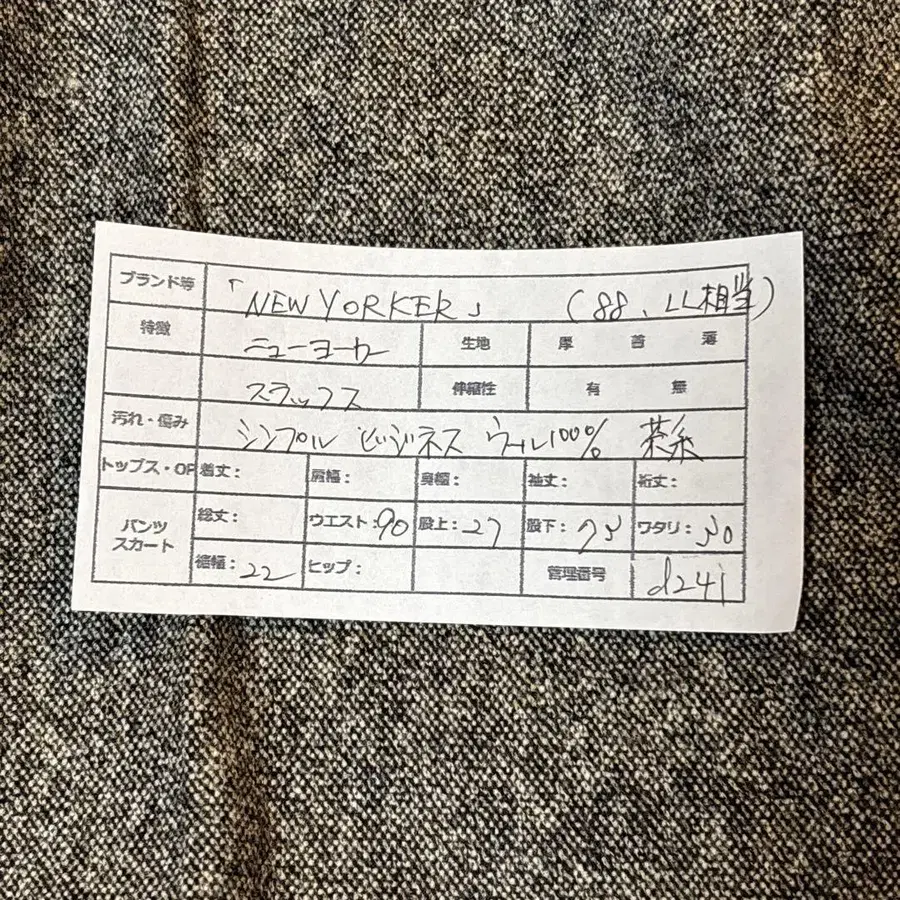 ブランド等 「NEW YORKER」 (88、LL相当)
特徴 ニューヨーカー 生地 厚 普 薄
スラックス 伸縮性 有 無
汚れ・傷み シンプル ビジネス ウール100% 茶系
トップス・OP 着丈: 肩幅: 身幅: 袖丈: 裄丈:
パンツ スカート 総丈: ウエスト:90 股上:27 股下:75 ワタリ:30
裾幅:22 ヒップ: 管理番号 d241